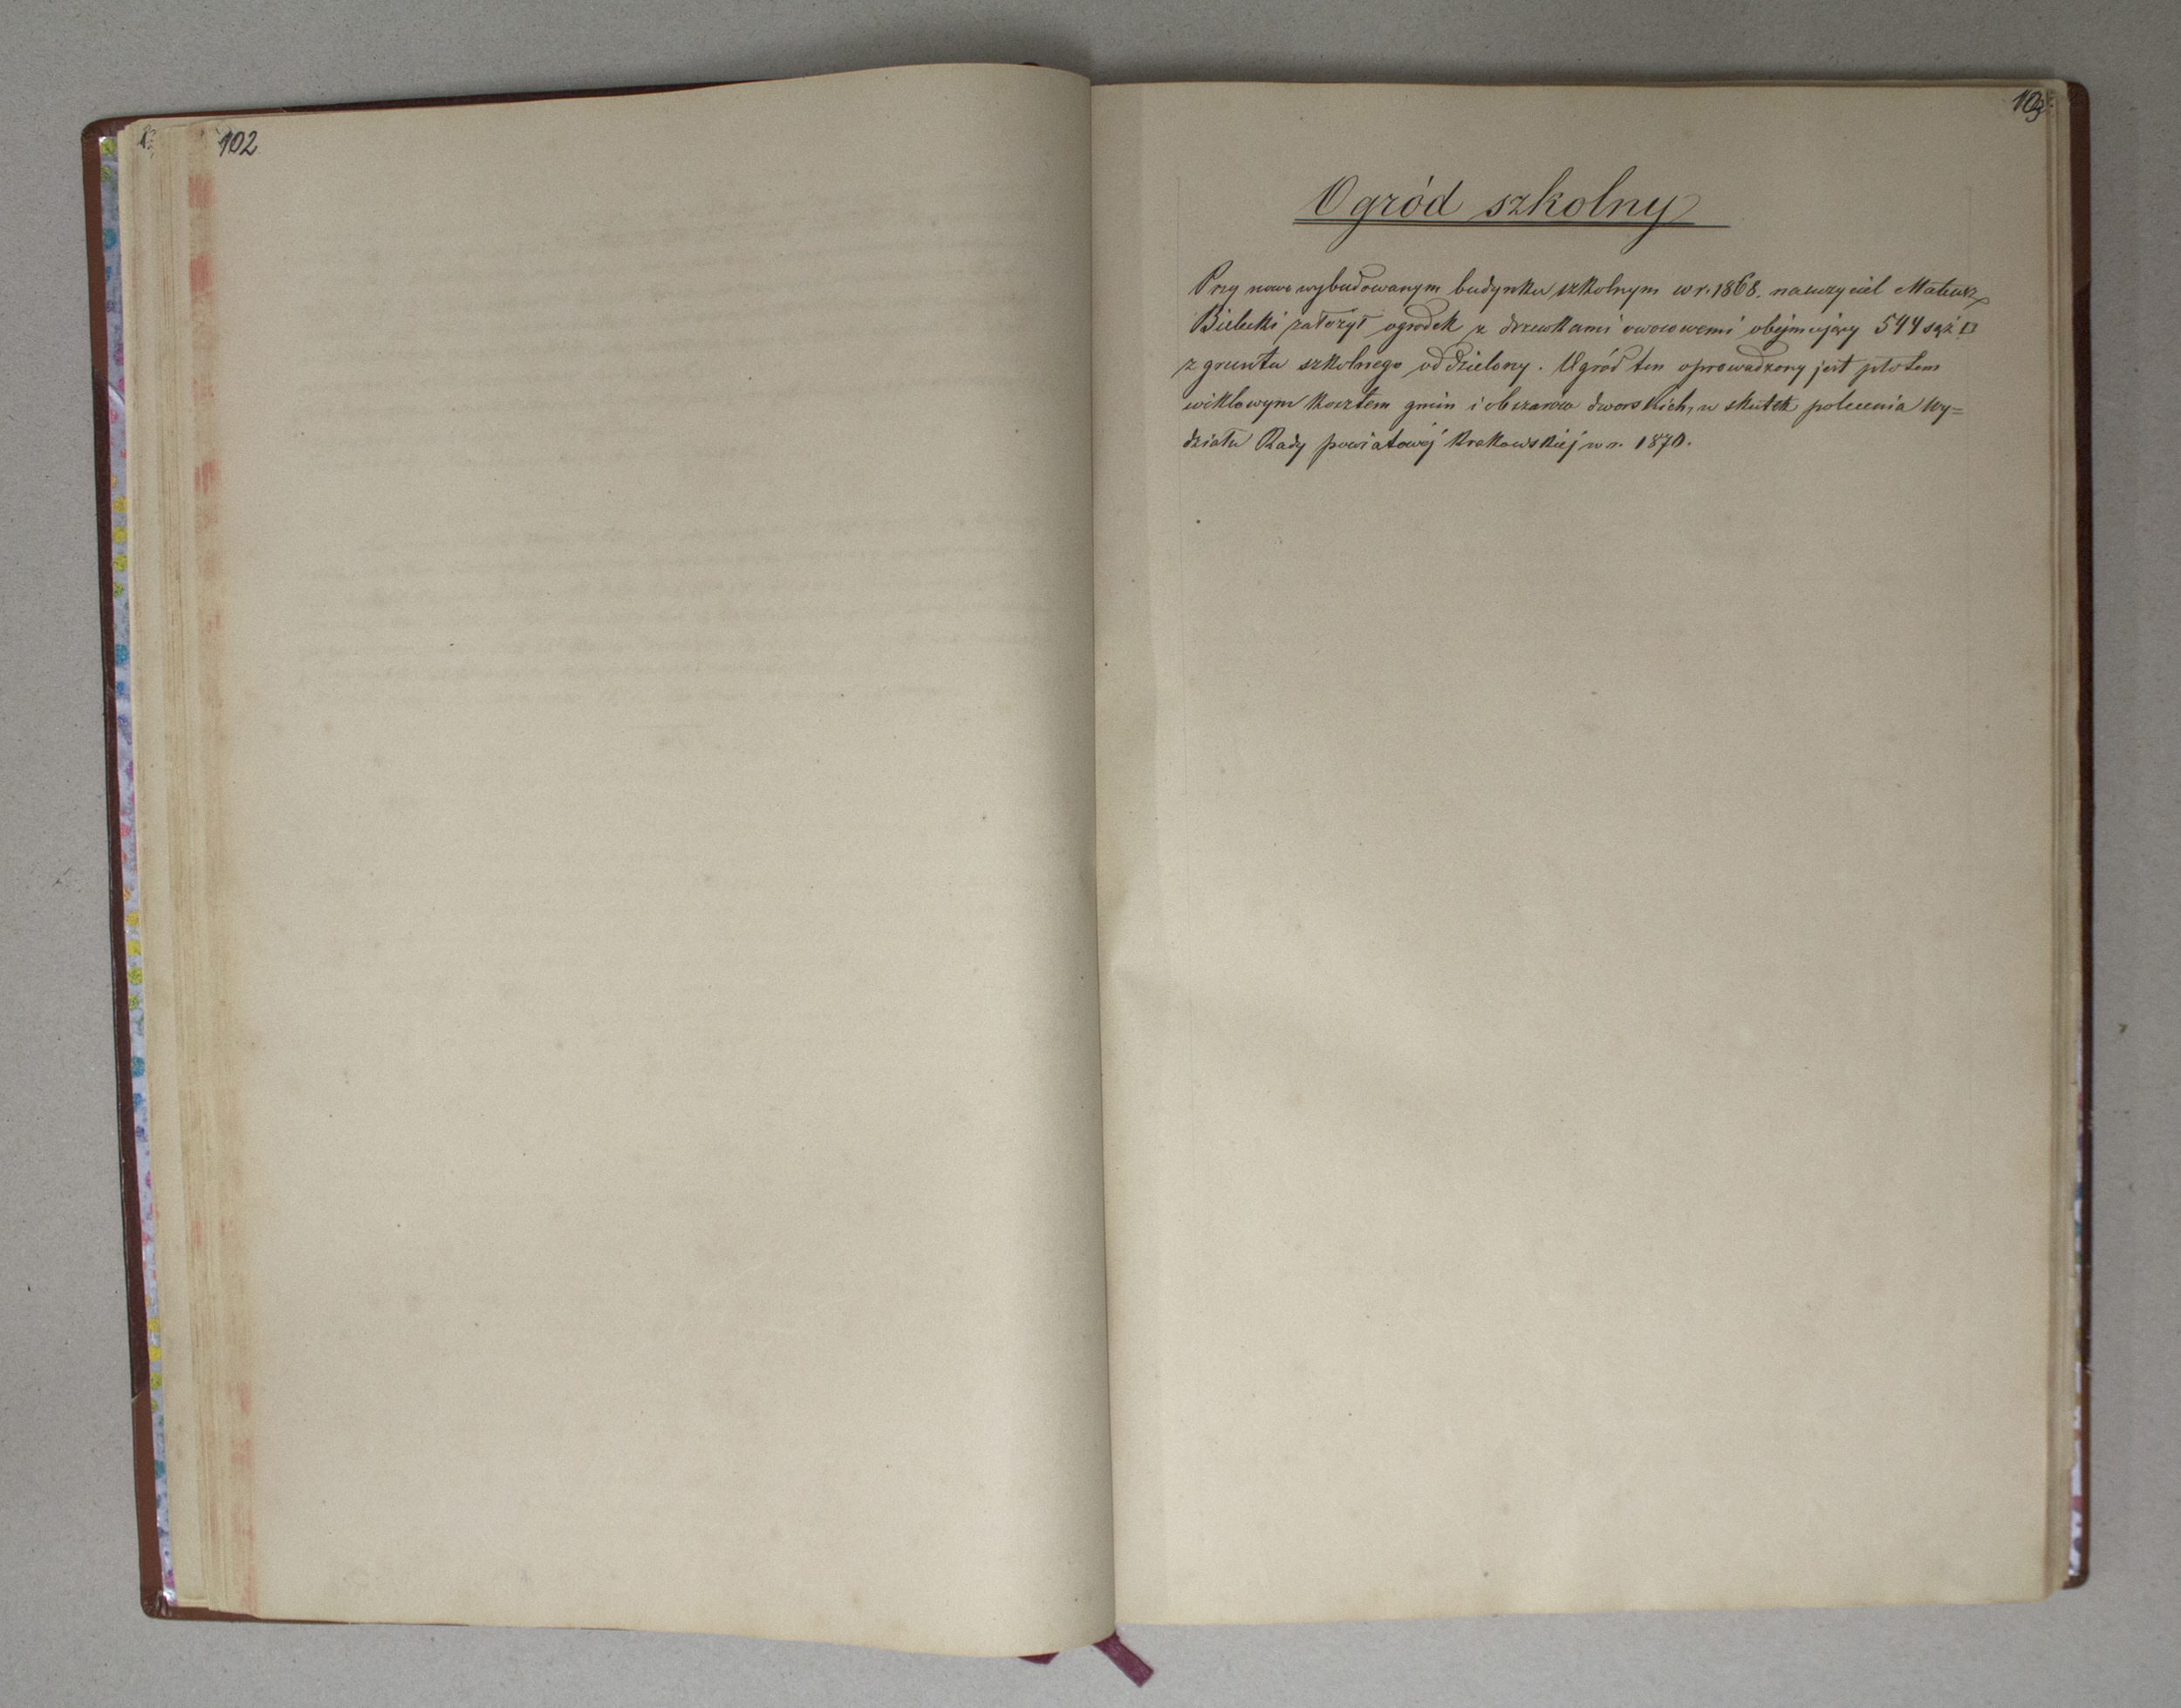 102
103
Ogród szkolny
Przy nowo wybudowanym budynku szkolnym w r. 1868. nauczyciel Mateusz
Bielecki założył ogrodek z drzewkami owocowemi obejmujący 544 sąż □
z gruntu szkolnego oddzielony. Ogród ten oprowadzony jest płotem
wiklowym kosztem gmin i obszarów dworskich, w skutek polecenia Wy=
działu Rady powiatowéj Krakowskiéj w r. 1870.